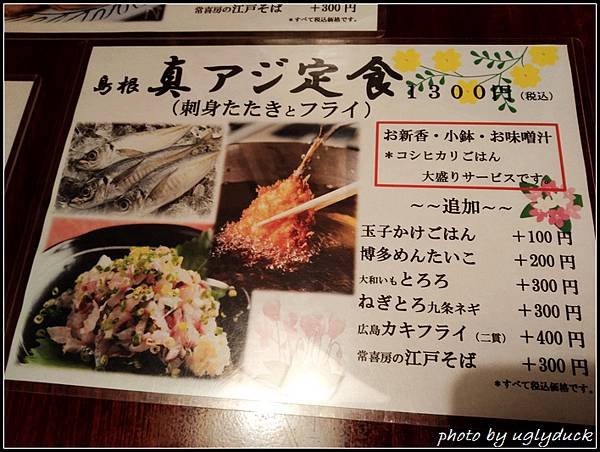 常喜房の江戸そば +300円
*すべて税込価格です。
島根 真アジ定食 1300円(税込)
(刺身たたきとフライ)
お新香・小鉢・お味噌汁
*コシヒカリごはん
大盛りサービスです
~~追加~~
玉子かけごはん +100円
博多めんたいこ +200円
大和いもとろろ +300円
ねぎとろ九条ネギ +300円
広島カキフライ(二貫) +400円
常喜房の江戸そば +300円
*すべて税込価格です。
photo by uglyduck